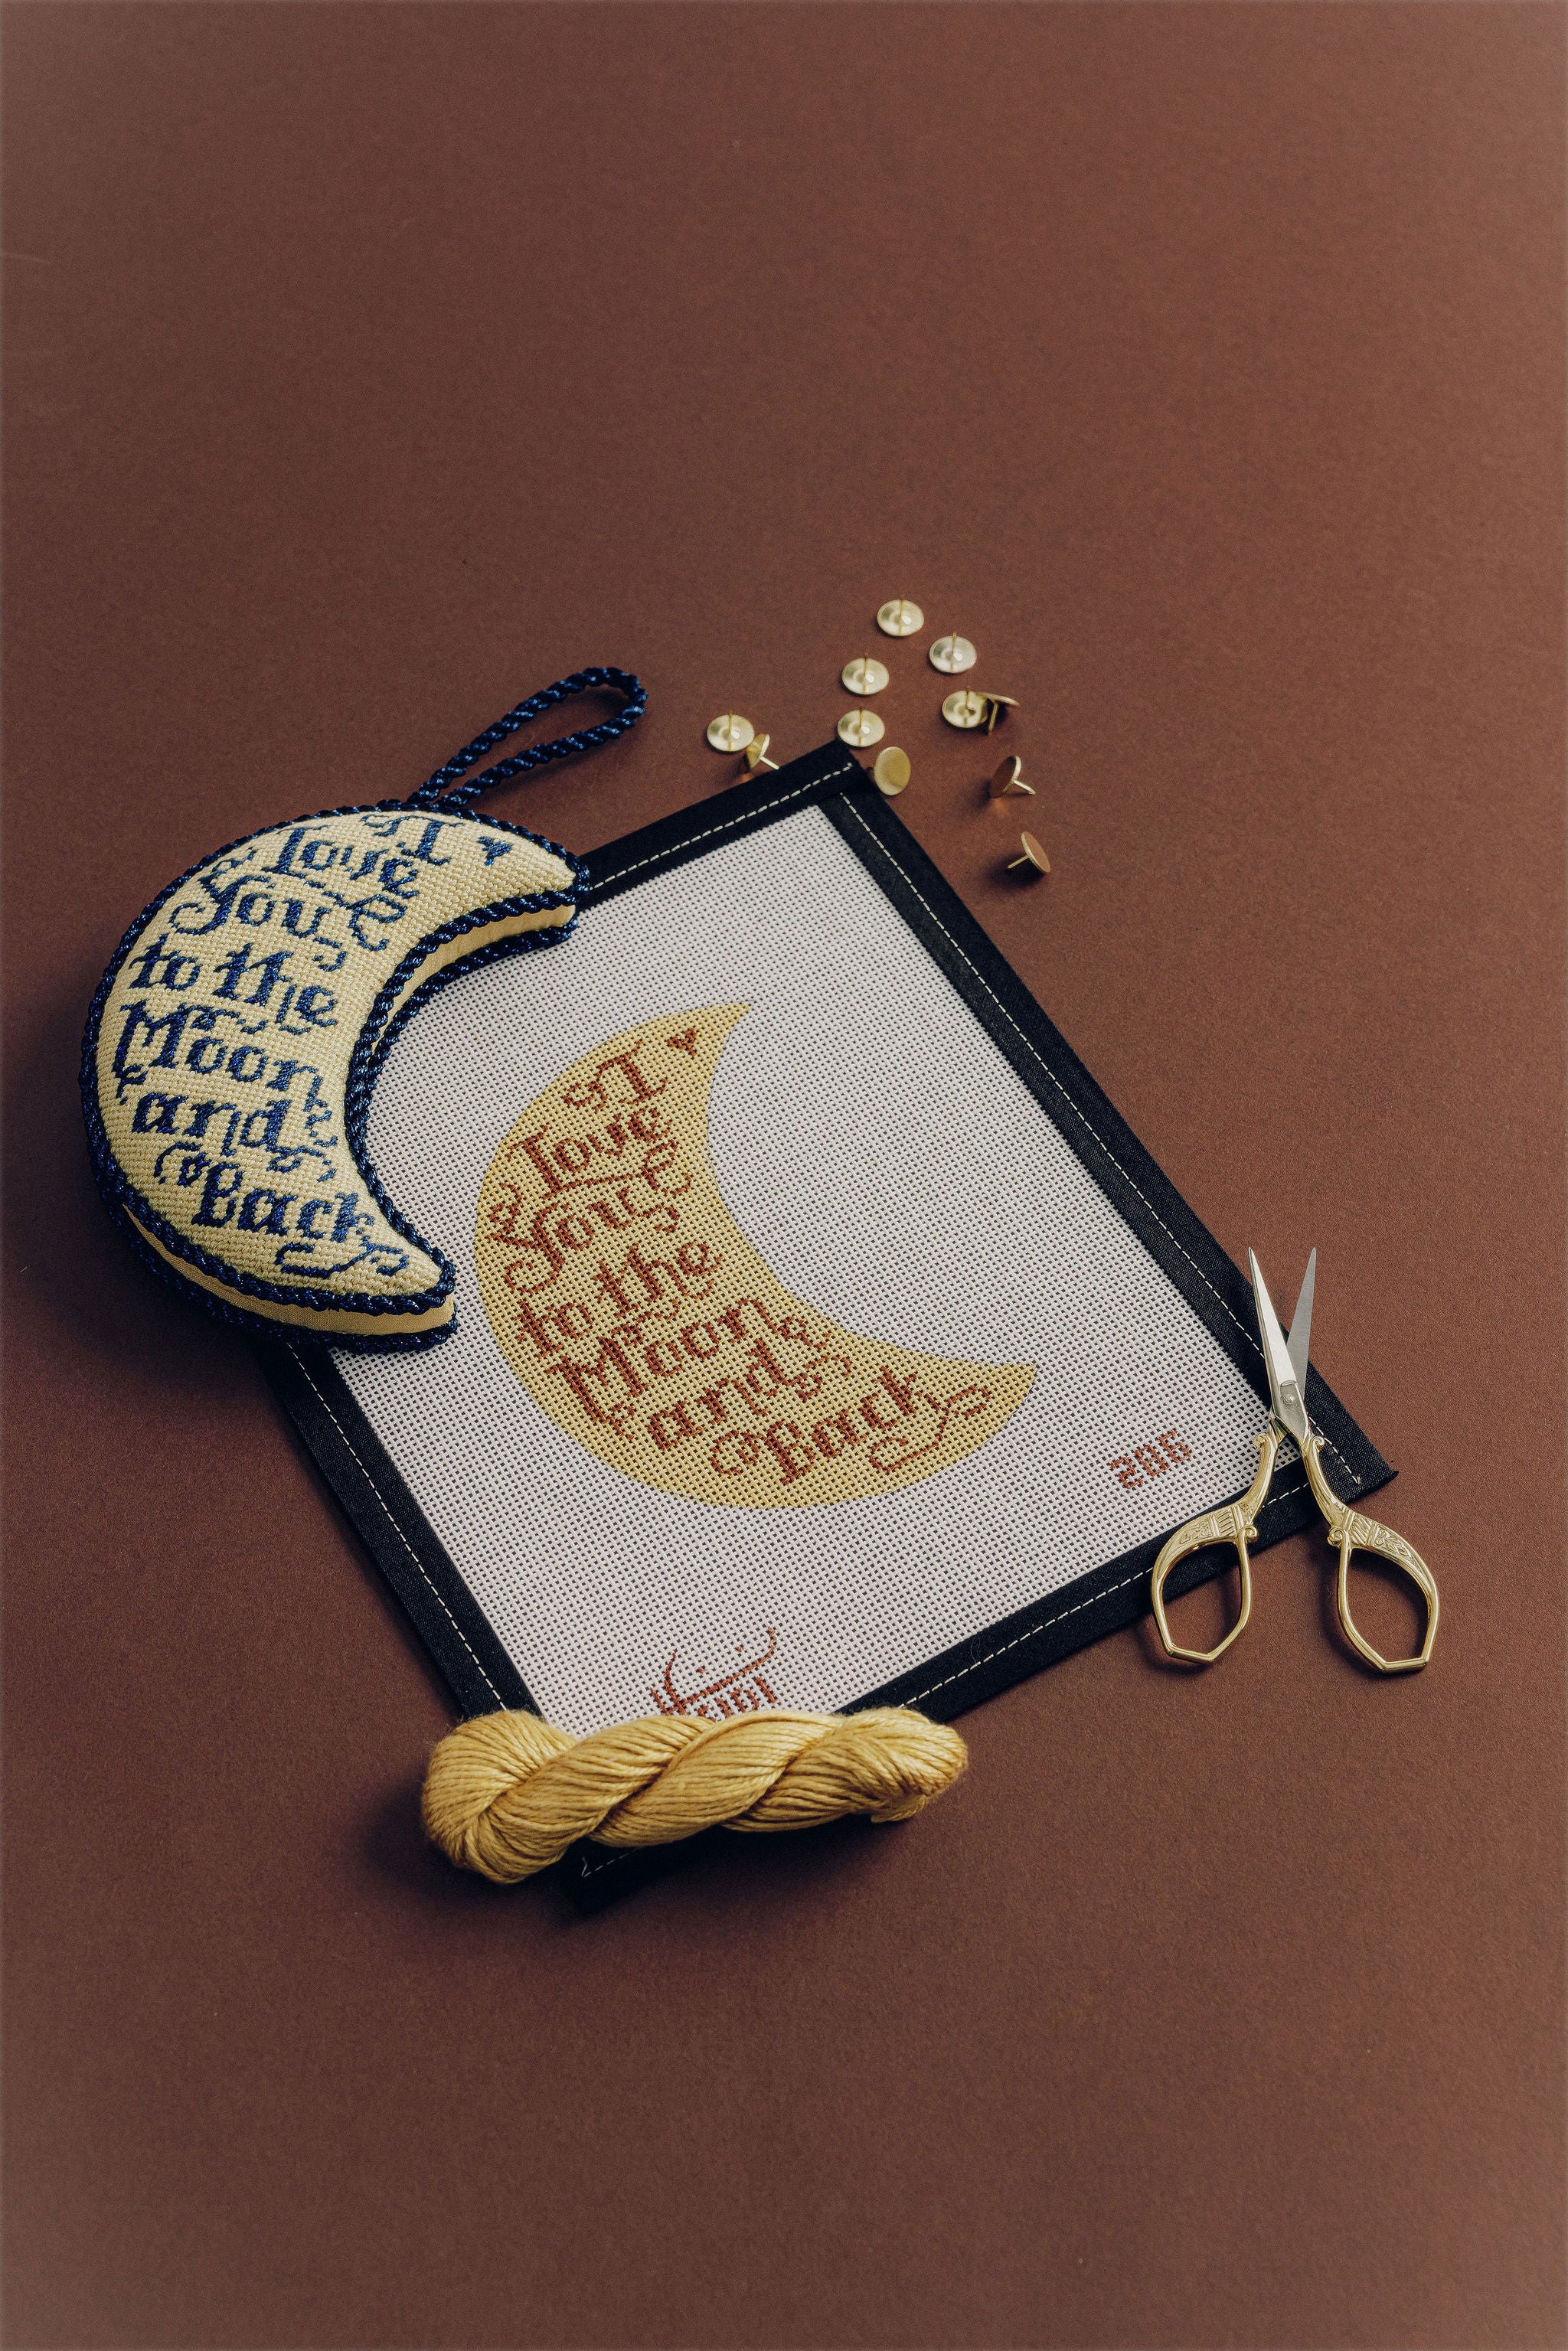 I
Love
You
to the
Moon
and
Back
I
Love
You
to the
Moon
and
Back
206